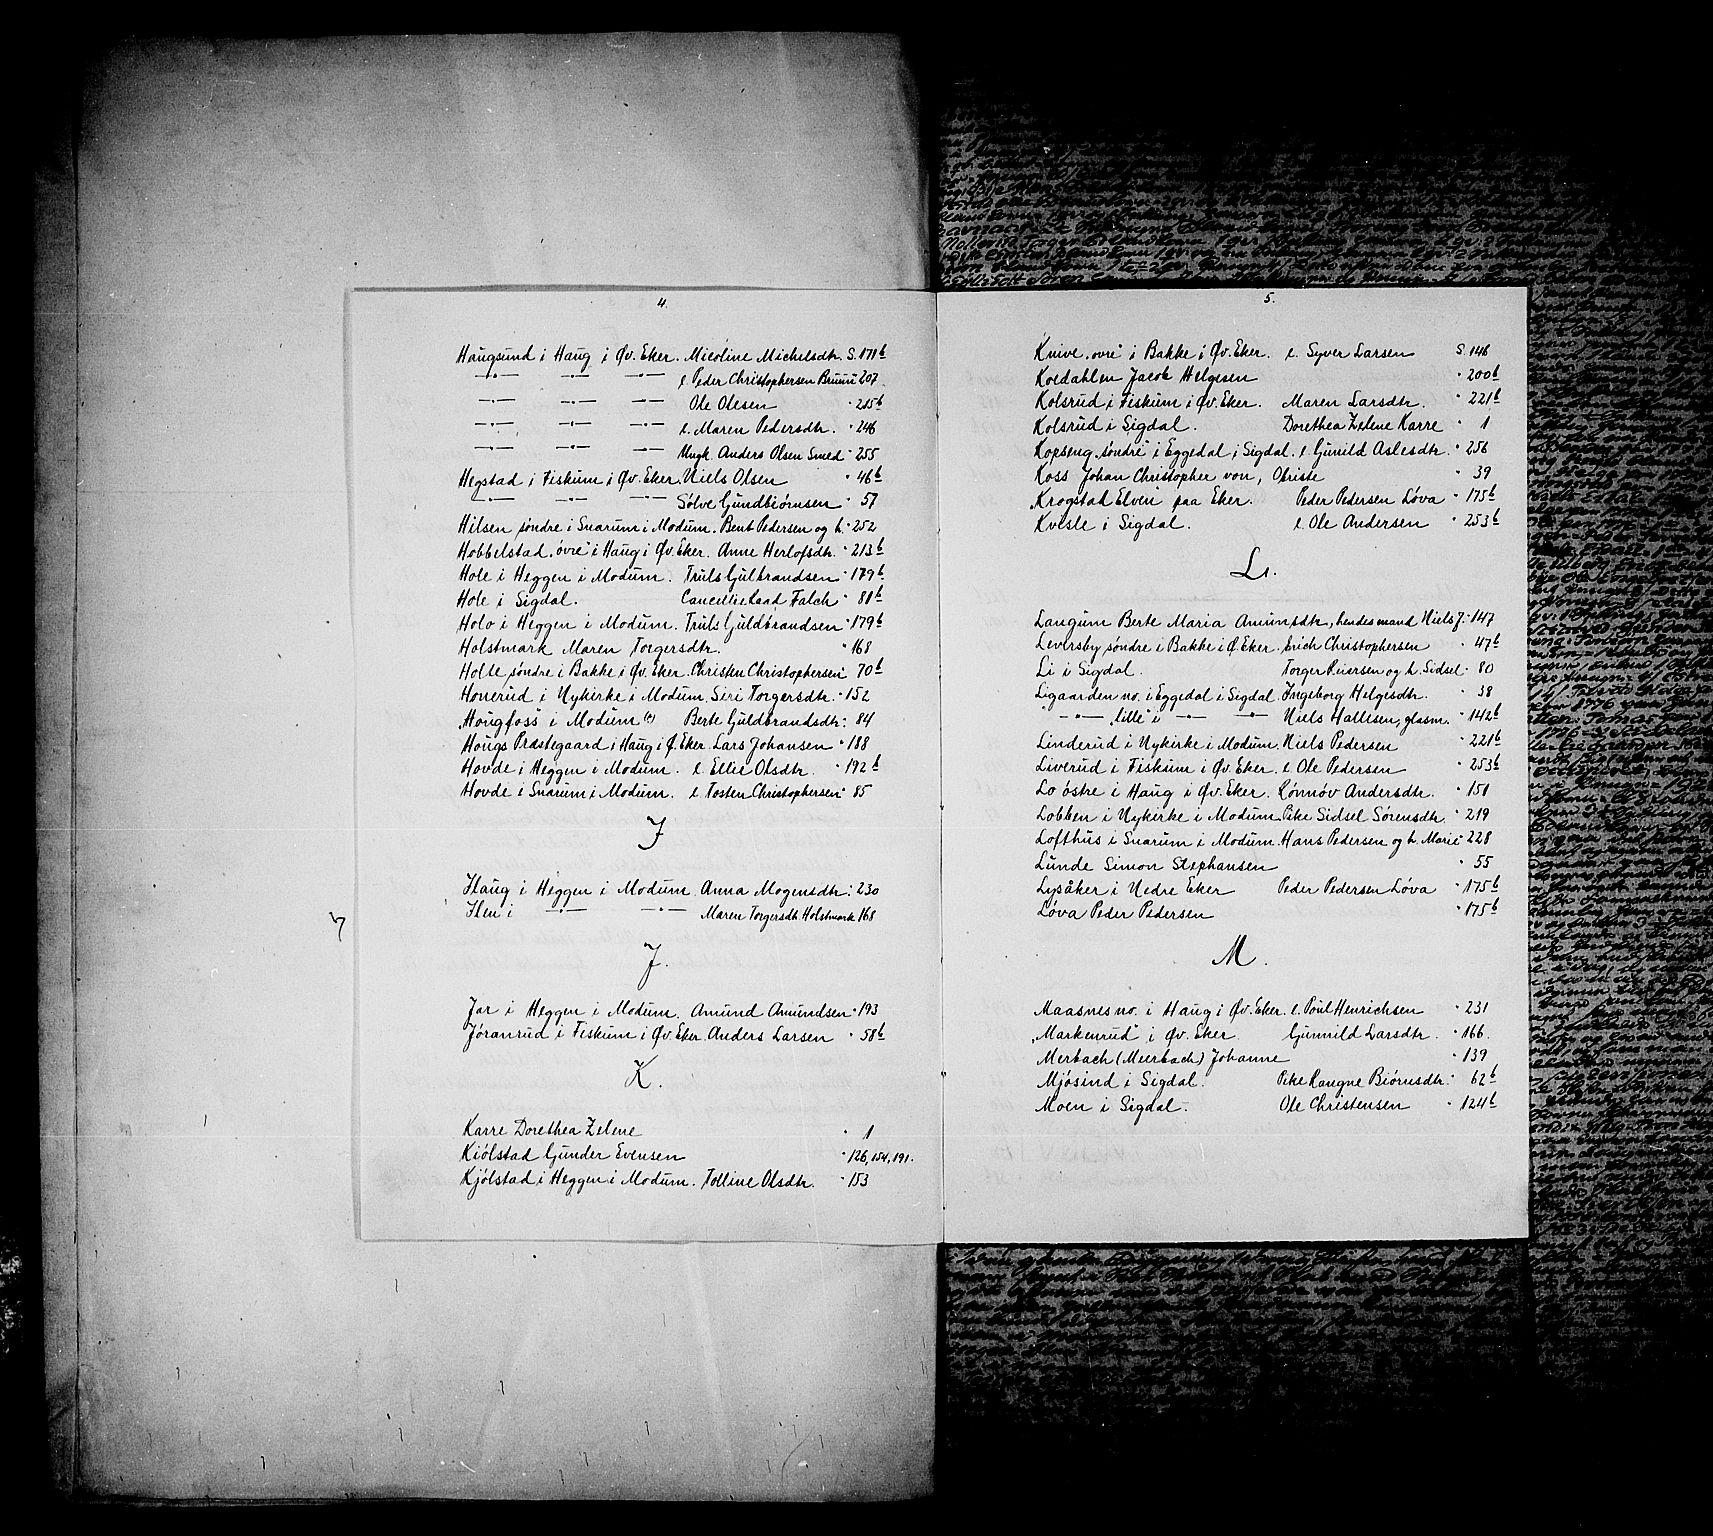 4.
Haugsund i Haug i Øv. Eker. Micoline Michelsdtr. S. 171b
—"— —"— —"— e. Peder Christophersen Bruun 207.
—"— —"— —"— Ole Olesen " 215b
—"— —"— —"— e. Maren Pedersdtr. " 246
—"— —"— —"— Ungk. Anders Olsen Smed " 255
Hegstad i Fiskum i Øv. Eker. Niels Olsen " 46b
—"— —"— —"— Sølve Gundbiørnsen " 57
Hilsen søndre i Snarum i Modum. Bent Pedersen og h. " 252
Hobbelstad "øvre" i Haug i Øv. Eker. Anne Herlofsdtr. " 213b
Hole i Heggen i Modum. Truls Gulbrandsen " 179b
Hole i Sigdal. Cancellieraad Falch " 81b
Holo i Heggen i Modum. Truls Guldbrandsen " 179b
Holstmark Maren Torgersdtr. " 168
Holte søndre i Bakke i Øv. Eker. Christen Christophersen " 70b
Honerud i Nykirke i Modum. Siri Torgersdtr. " 152
"Hougfoss" i Modum (?) Berte Guldbrandsdtr. " 84
Hougs Præstegaard i Haug i Ø. Eker. Lars Johansen " 188
Hovde i Heggen i Modum. e. Ellie Olsdtr. " 192b
Hovde i Snarum i Modum. e. Tosten Christophersen " 85
I
Ilaug i Heggen i Modum. Anna Mogensdtr. " 230
Ilen i —"— —"— Maren Torgersdtr. Holstmark 168
J.
Jar i Heggen i Modum. Amund Amundsen " 193
Jøranrud i Fiskum i Øv. Eker. Anders Larsen " 58b
K.
Karre Dorethea Zelene " 1
Kiølstad Gunder Evensen " 126, 154, 191.
Kjølstad i Heggen i Modum. Tolline Olsdtr. " 153
5.
Knive "øvre" i Bakke i Øv. Eker. e. Syver Larsen S. 146
Koedahlen Jacob Helgesen " 200b
Kolsrud i Fiskum i Øv. Eker. Maren Larsdtr. " 221b
Kolsrud i Sigdal. Dorethea Zelene Karre " 1
Kopseng "søndre" i Eggedal i Sigdal. e. Gunild Aslesdtr. " 256
Koss Johan Christopher von, Obriste " 39
"Krogstad Elven" paa Eker. Peder Pedersen Løva " 175b
Kvisle i Sigdal. e. Ole Andersen " 253b
L.
Langum Berte Maria Amundsdtr, hendes mand Niels J. " 147
Leversby søndre i Bakke i Ø. Eker. Erich Christophersen " 47b
Li i Sigdal. Torger Reiersen og h. Sidsel " 80
Ligaarden no. i Eggedal i Sigdal. Ingeborg Helgesdtr. " 38
" —"— "lille" i —"— —"— Niels Hallesen, glasm. " 142b
Linderud i Nykirke i Modum. Niels Pedersen " 221b
Liverud i Fiskum i Øv. Eker. e. Ole Pedersen " 253b
Lo østre i Haug i Øv. Eker. Rønnøv Andersdtr. " 151
Lobben i Nykirke i Modum. Pike Sidsel Sørensdtr. " 219
Lofthus i Snarum i Modum. Hans Pedersen og h. Marie " 228
Lunde Simon Stephansen " 55
Lysåker i Nedre Eker Peder Pedersen Løva " 175b
Løva Peder Pedersen " 175b
M.
Maasnes no. i Haug i Øv. Eker. e. Poul Henrichsen " 231
"Markenrud" i Øv. Eker. Gunnild Larsdtr. " 166.
Merbach (Meerbach) Johanne " 139
Mjøsind i Sigdal. Pike Raugne Biørnsdtr. " 62b
Moen i Sigdal. Ole Christensen " 124b